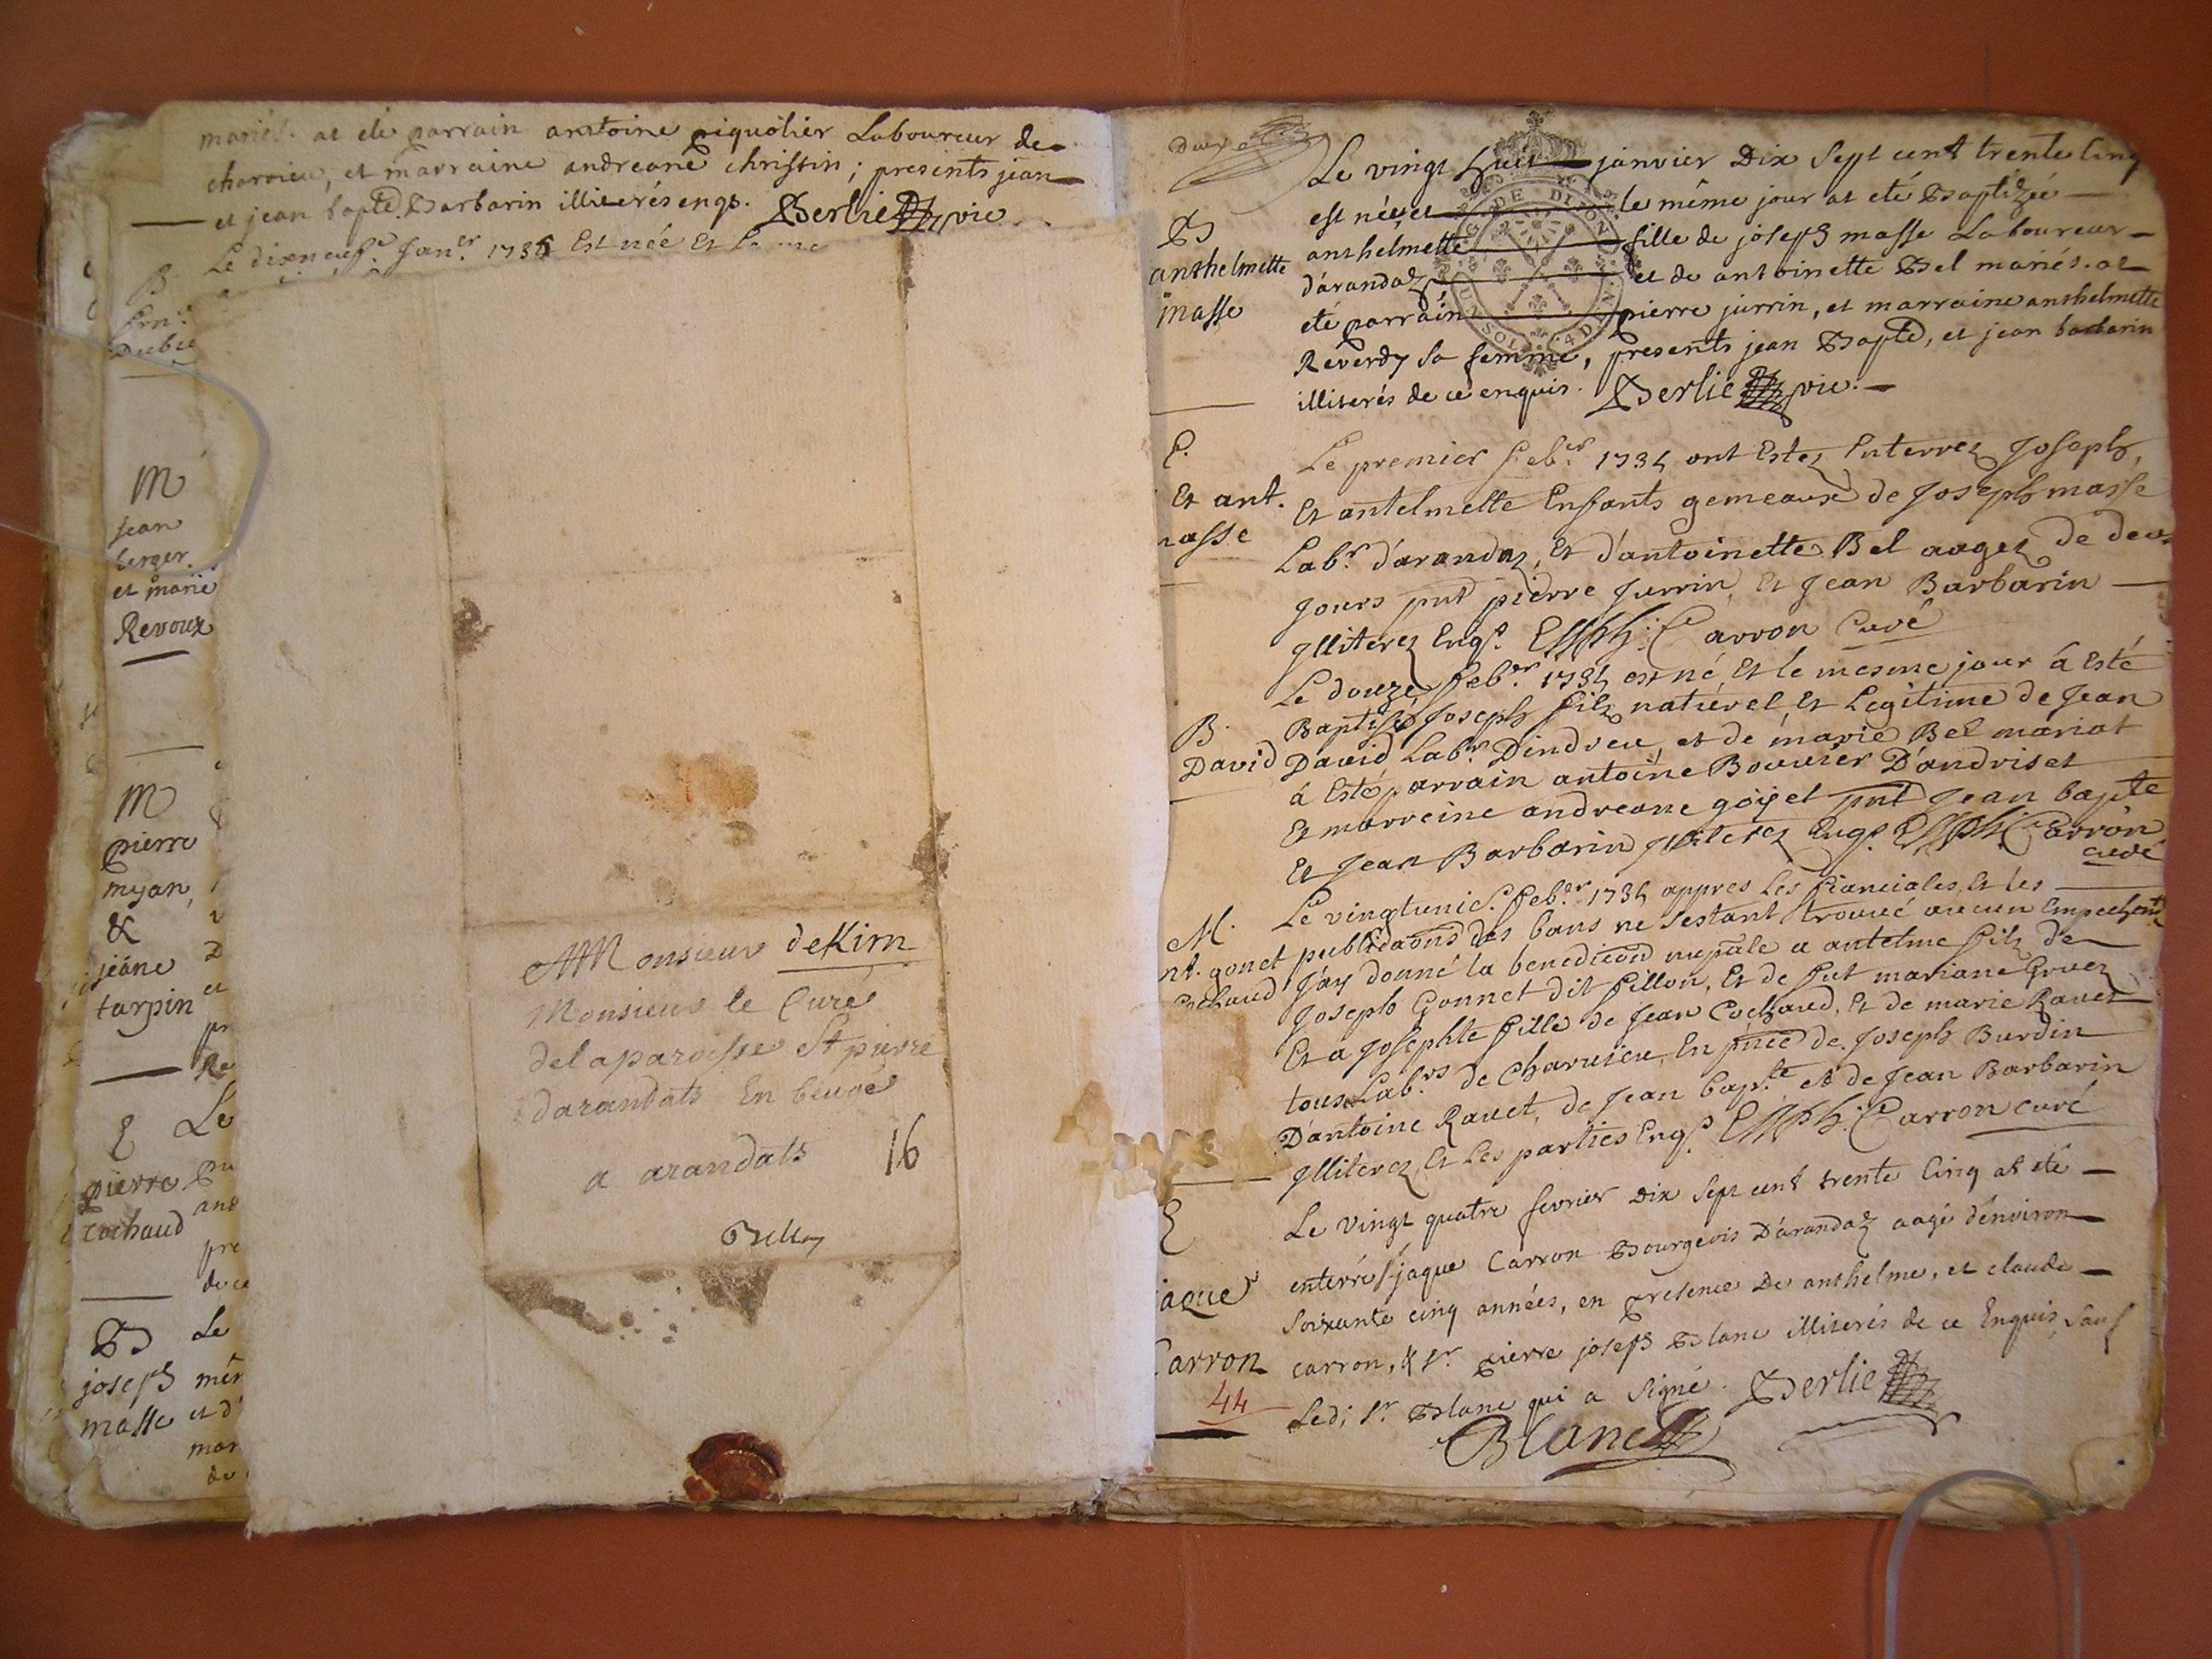 mariés. at eté parrain antoine piquolier Laboureur de
charvieu, et marraine andreane christin; presents jean
et jean bapte. Barbarin illiterés enqs. Berlie vic.
B. Le dixneufe. Janer. 1735 Est née Et Le me
M
jean
berger
et marie
Revoux
M
pierre
myan,
&
jeane
tarpin
E Le
pierre
cochaud
B Le
joseph mêm
masse et d'
mar
de
A Monsieur deKirn
Monsieur le Curé
de la paroisse St pierre
darandats En beugé
a arandats 16
Belley
Deux
Le vingt huit janvier Dix Sept cent trente Cinq
est née, et le même jour at eté Baptizée
anthelmette fille de joseph masse Laboureur
d'arandaz et de antoinette Bel mariés. at
eté parrain pierre jurrin, et marraine anthelmette
Reverdy sa femme, presents jean Bapte, et jean barbarin
illiterés de ce enquis. Berlie vic.
B
anthelmette
masse
G. DE DIJON
UN SOL 4 D.
E.
Et ant.
masse
Le premier feber. 1735 ont Estez Enterrez Joseph,
Et antelmette Enfants gemeaux de Joseph masse
Labr. d'arandaz, Et d'antoinette Bel aagez de deux
Jours pnt pierre Jurrin, Et Jean Barbarin
Illiterez Enqs. Carron Curé
B.
David
Le douze feber. 1735 est né, Et le mesme jour à Esté
Baptisé Joseph fils naturel Et Legitime de Jean
David Labr. Dindrieu, et de marie Bel mariat
à Esté parrain antoine Bouvier D'andriset
Et marreine andreane goiset pnt Jean bapte
Et Jean Barbarin Illiterez Enqs. Carron
curé
M.
nt. gonet
Cochaud
Le vingtunie. feber. 1735 appres Les fianciales, Et les
publicaons des bans ne sestant trouvé aucun Empechent
J'ay donné la benediction nupale a antelme fils de
Joseph Gonnet dit fillon, Et de fut mariane Gruez
Et a Josephte fille de Jean Cochaud, Et de marie Ravet
tous Labrs de Charvieu, En pnce de Joseph Burdin
D'antoine Ravet, de Jean Bapte et de Jean Barbarin
Illiterez, Et Les parties Enqs. Carron curé
E
jaque
Carron
44
Le vingt quatre fevrier Dix Sept cent trente Cinq at eté
enterré jaque Carron Bourgeois D'arandaz aagé d'environ
Soixante cinq années, en presence De anthelme, et claude
carron, & Sr. pierre joseph Blanc illiterés de ce Enquis, Sauf
Led; Sr. Blanc qui a Signé. Berlie
Blanc